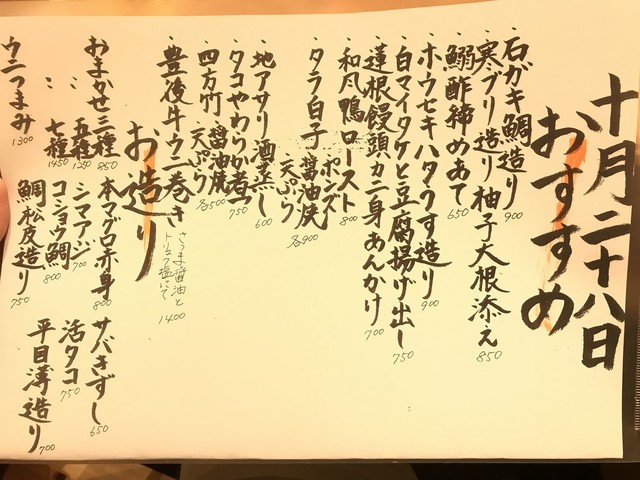 十月二十八日
おすすめ
石ガキ鯛造り 900
・寒ブリ造り柚子大根添え 850
・鰯酢締めあて 650
・ホウセキハタうす造り 900
・白マイタケと豆腐揚げ出し 750
・蓮根饅頭カニ身あんかけ 700
・和風鴨ロースト 800
・タラ白子 ポンズ 醤油焼 天ぷら 各900
・地アサリ酒蒸し 600
・タコやわらか煮 750
・四方竹 醤油焼 天ぷら 各500
・豊後牛ウニ巻き さつま醤油と トリュフ塩にて 1400
お造り
おまかせ三種 850
〃 五種 1250
〃 七種 1450
ウニつまみ 1300
本マグロ赤身 800
シマアジ 700
コショウ鯛 800
鯛松皮造り 750
サバきずし 650
活タコ 750
平目薄造り 700